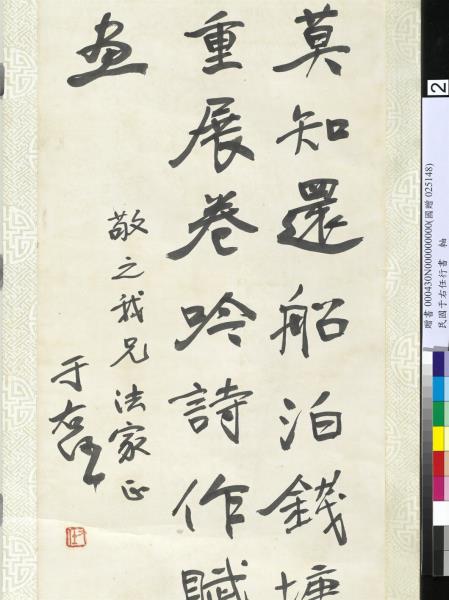 莫知還船泊錢塘
重展卷吟詩作賦
畫
敬之我兄法家正
于右任
右任
2
贈書 000430N000000000(國贈 025148)
民國于右任行書 軸